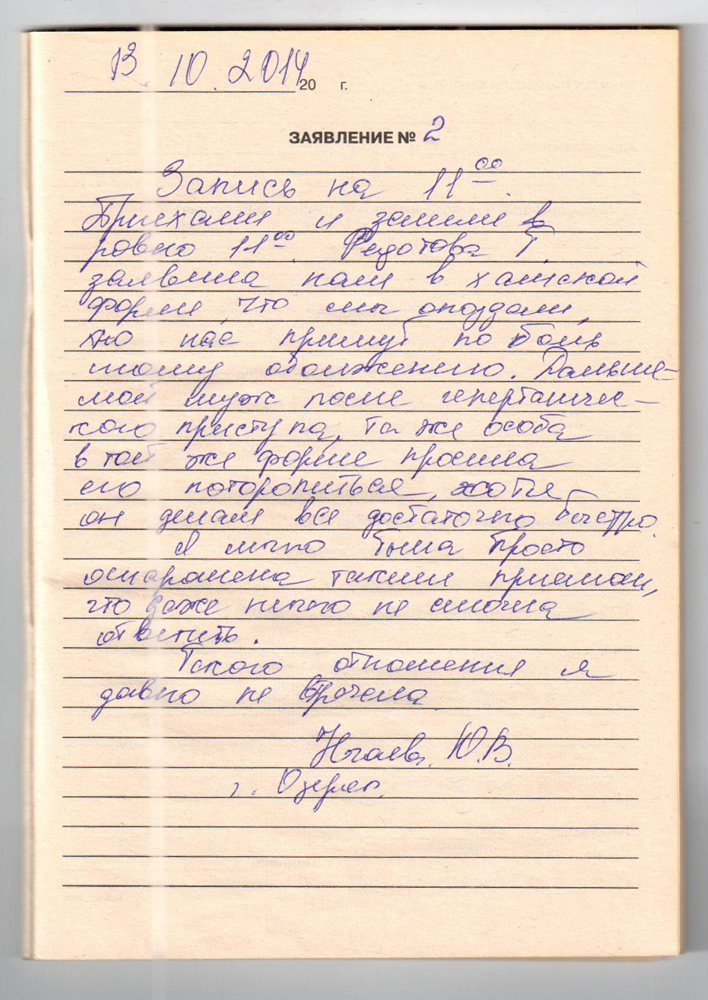 13.10.2014
20 г.
ЗАЯВЛЕНИЕ № 2
Запись на 11 00.
Приехали и зашли в
ровно 11 00. Федотова Т.
заявила нам в хамской
форме, что мы опоздали,
но нас примут по боль
шому одолжению. Дальше –
мой муж после гипертониче –
кого приступа, та же особа
в той же форме просила
его поторопиться, хотя
он делал все достаточно быстро.
Я лично была просто
ошарашена таким приемом,
что даже ничего не смогла
ответить.
Такого отношения я
давно не встречала.
Ю.В.
г. Озерск.